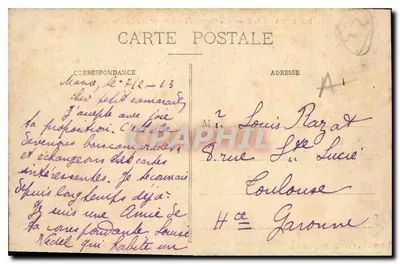 CARTE POSTALE
CORRESPONDANCE
Mona, le 7/2-13
cher petit camarade
J'accepte avec joie
ta proposition. C'est
Devenons bons camarades
et échangeons des cartes
intéressantes. Je te connais
depuis longtemps déjà.
Je suis une Amie de
ta correspondante Louise
Nédel qui habite un
ADRESSE
A
Mr Louis Razat
8 rue Ste Lucie
Toulouse
Hte Garonne
Cartes-Postales
PRC